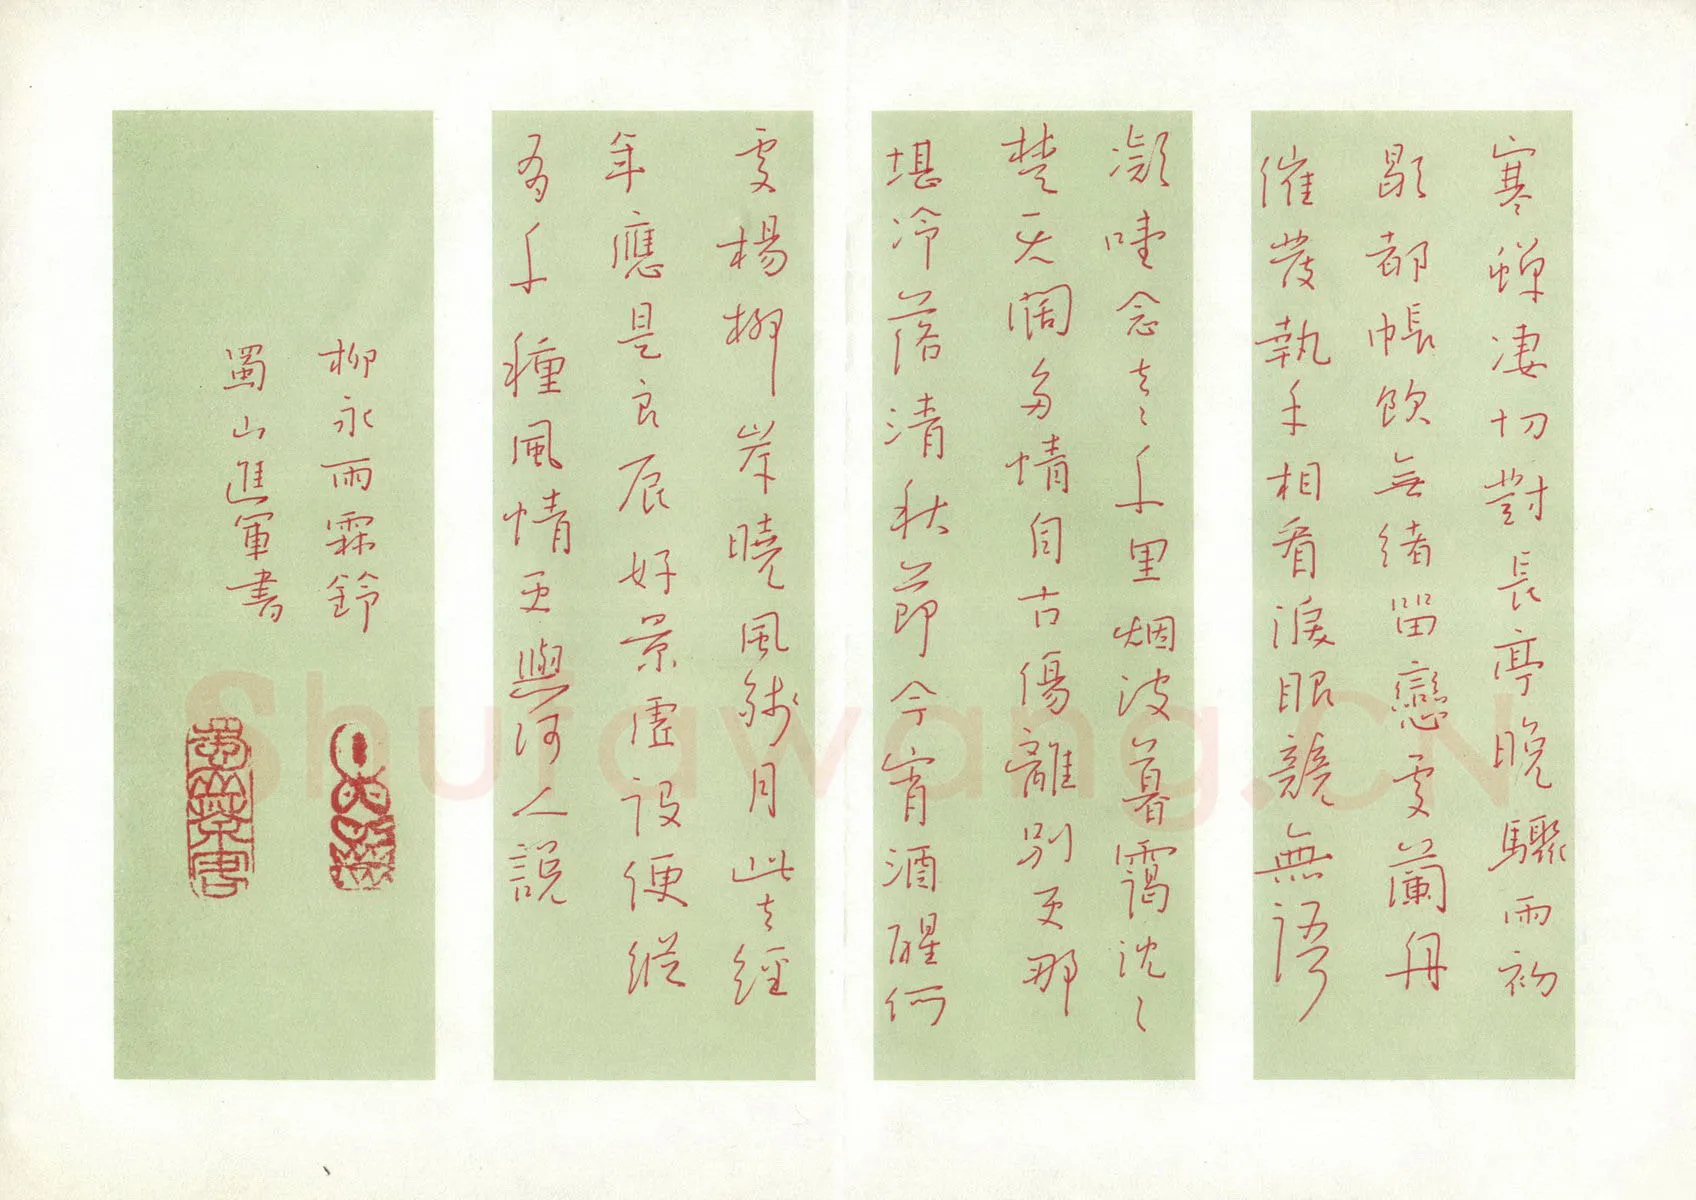 寒蟬凄切對長亭晚驟雨初
歇都帳飲無緒留戀處蘭舟
催發執手相看淚眼競無語
凝噎念去々千里烟波暮靄沈々
楚天闊多情自古傷離別更那
堪冷落清秋節今宵酒醒何
處楊柳岸曉風殘月此去經
年應是良辰好景虛設便縱
有千種風情更與何人說
柳永雨霖鈴
蜀山進軍書
Shufawang.CN